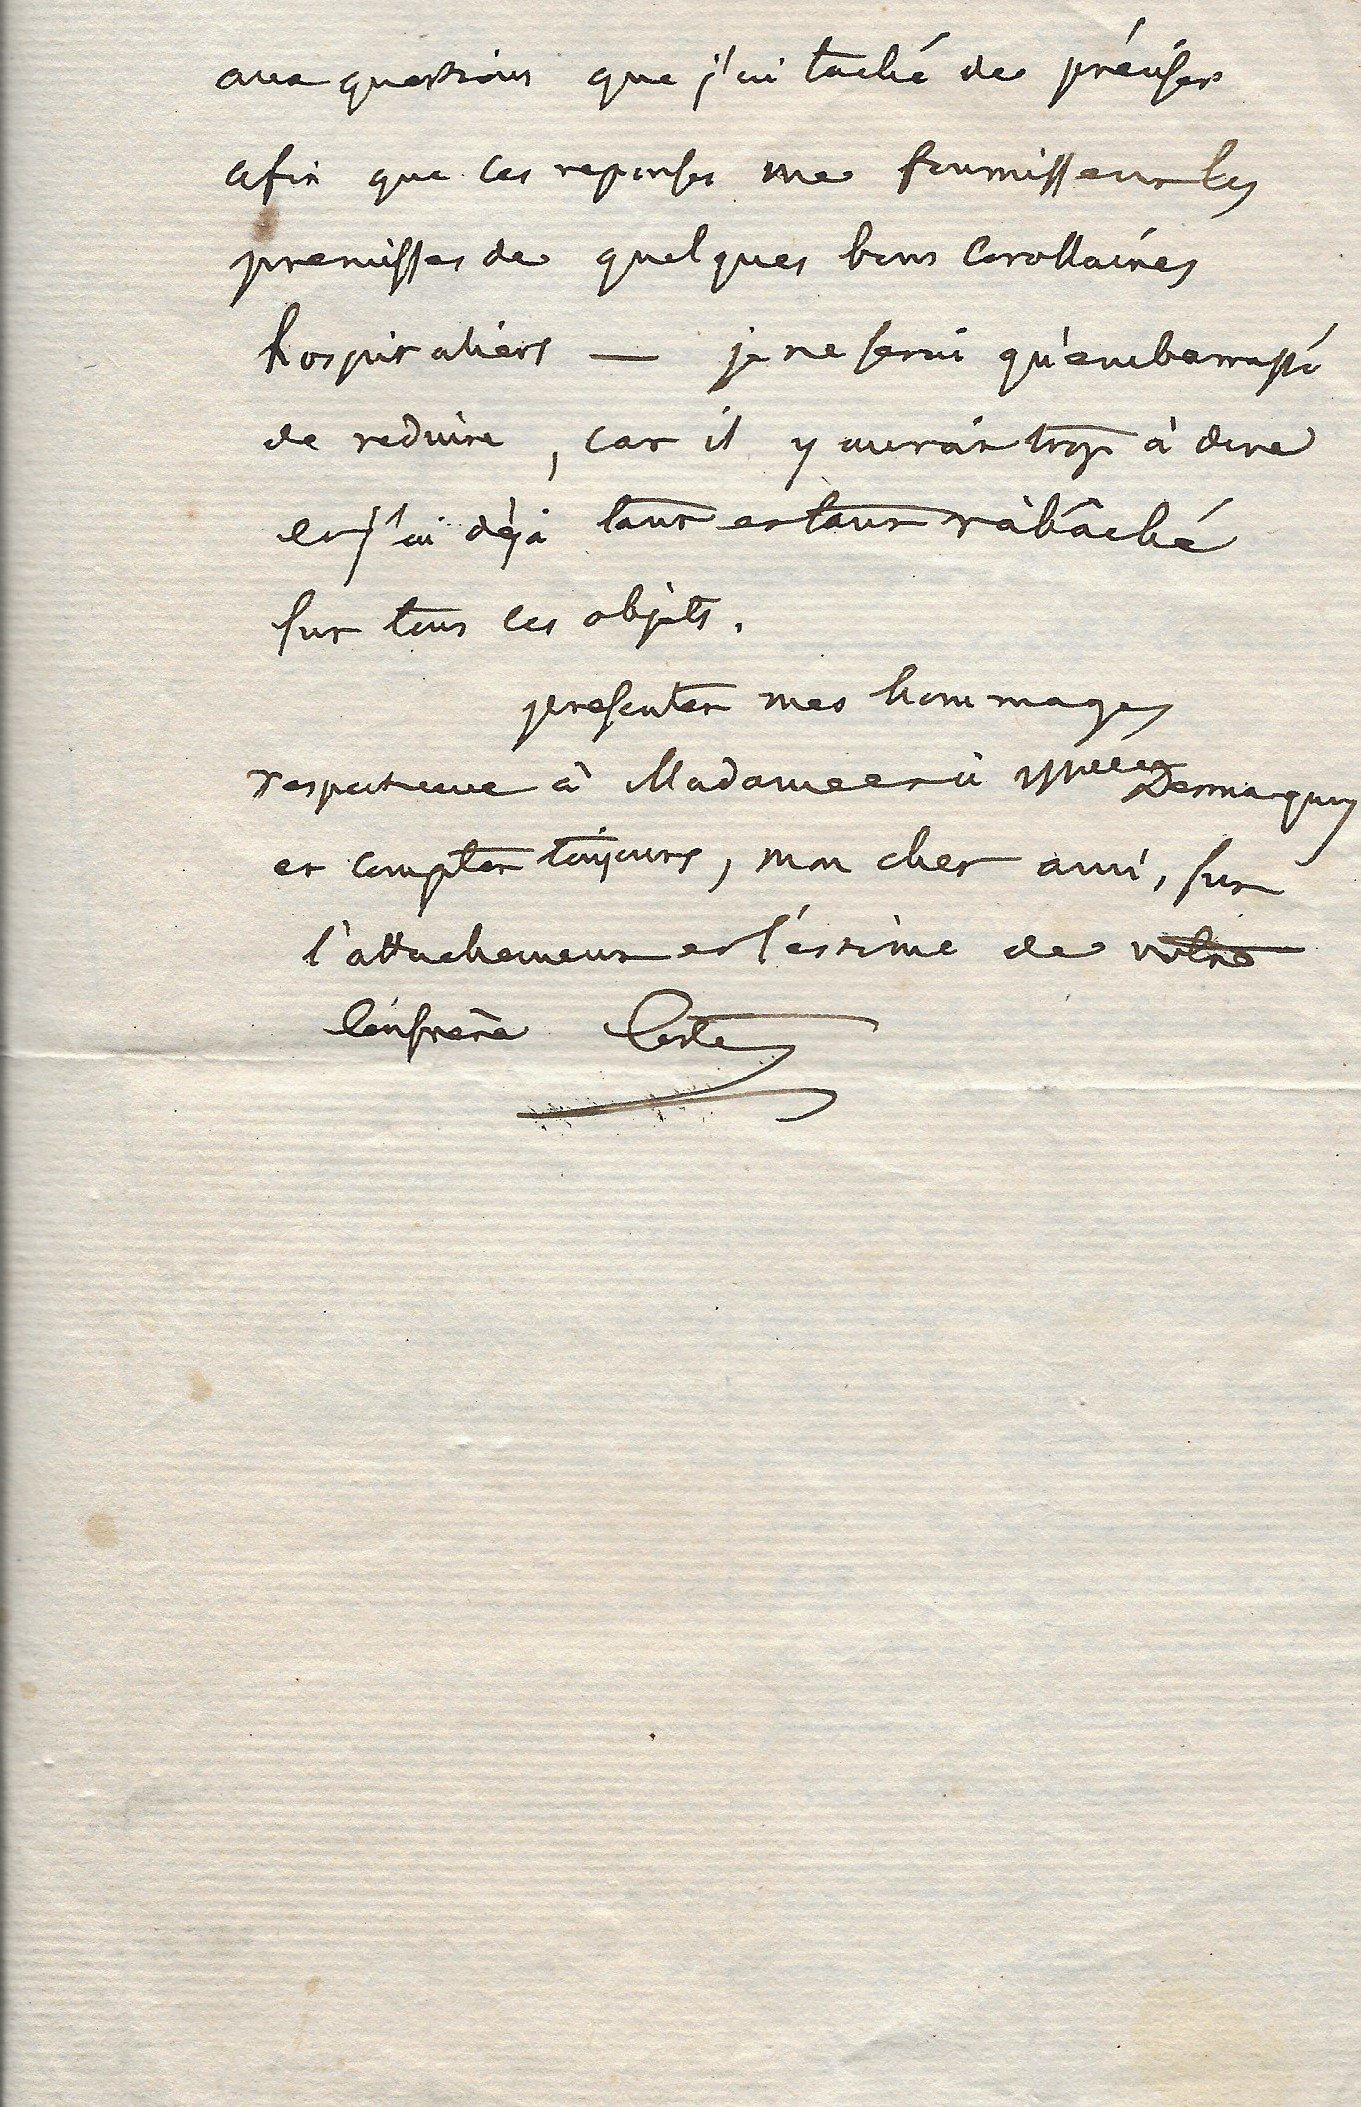 aux questions que j'ai taché de préciser
afin que ces reponses me fournissent les
premisses de quelques bons Corollaires
hospitaliers — je ne serai qu'embarrassé
de reduire, car il y aurait trop à dire
et j'ai dèjà tant et tant ràbâché
sur tous ces objets.
presentez mes hommages
respectueux à Madame et à Melles Desmaquay
et comptez toujours, mon cher ami, sur
l'attachement et l'éstime de votre
Confrère Coste